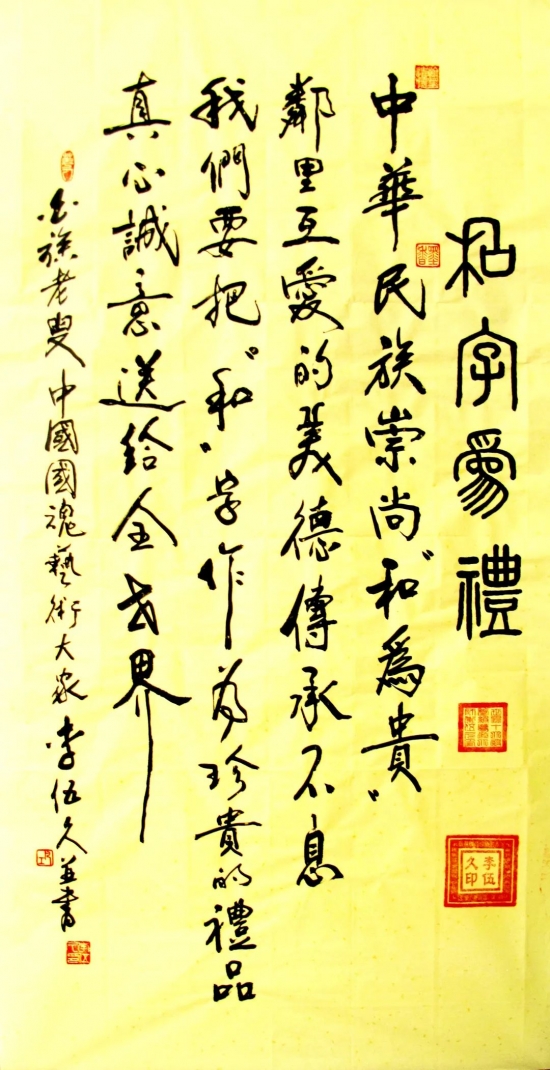 和字為禮
中華民族崇尚“和為貴”
鄰里互愛的美德傳承不息
我們要把“和”字作为珍貴的禮品
真心誠意送給全世界
白族老叟 中國國魂藝術大家 李伍久並書
李伍久印